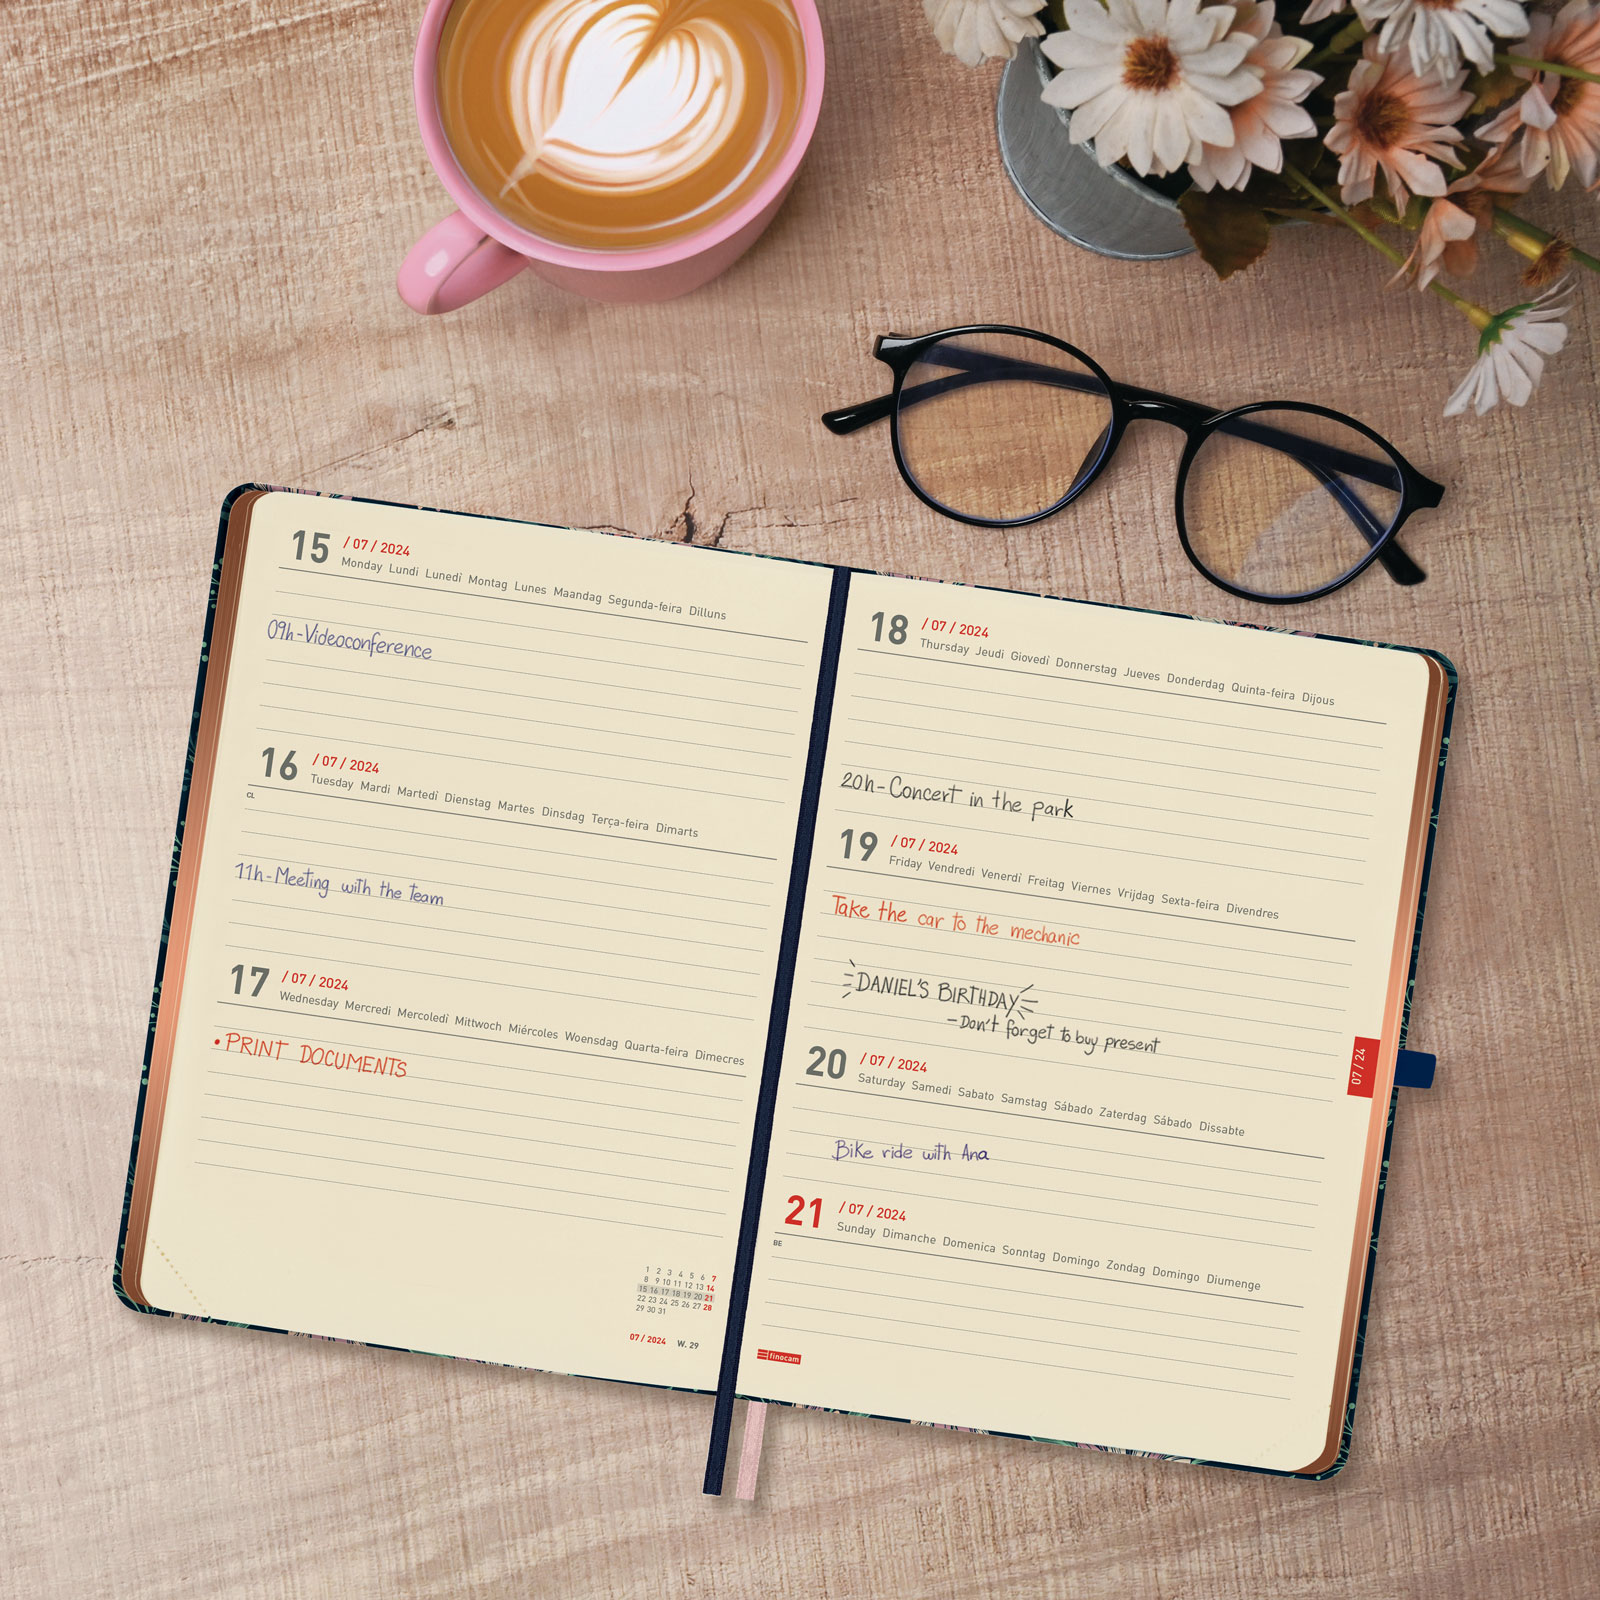 15 / 07 / 2024
Monday Lundi Lunedì Montag Lunes Maandag Segunda-feira Dilluns
09h-Videoconference
16 / 07 / 2024
Tuesday Mardi Martedì Dienstag Martes Dinsdag Terça-feira Dimarts
CL
11h-Meeting with the team
17 / 07 / 2024
Wednesday Mercredi Mercoledì Mittwoch Miércoles Woensdag Quarta-feira Dimecres
• PRINT DOCUMENTS
1 2 3 4 5 6 7
8 9 10 11 12 13 14
15 16 17 18 19 20 21
22 23 24 25 26 27 28
29 30 31
07 / 2024 W. 29
18 / 07 / 2024
Thursday Jeudi Giovedì Donnerstag Jueves Donderdag Quinta-feira Dijous
20h-Concert in the park
19 / 07 / 2024
Friday Vendredi Venerdì Freitag Viernes Vrijdag Sexta-feira Divendres
Take the car to the mechanic
DANIEL'S BIRTHDAY
-Don't forget to buy present
07 / 24
20 / 07 / 2024
Saturday Samedi Sabato Samstag Sábado Zaterdag Sábado Dissabte
Bike ride with Ana
21 / 07 / 2024
Sunday Dimanche Domenica Sonntag Domingo Zondag Domingo Diumenge
BE
finocam